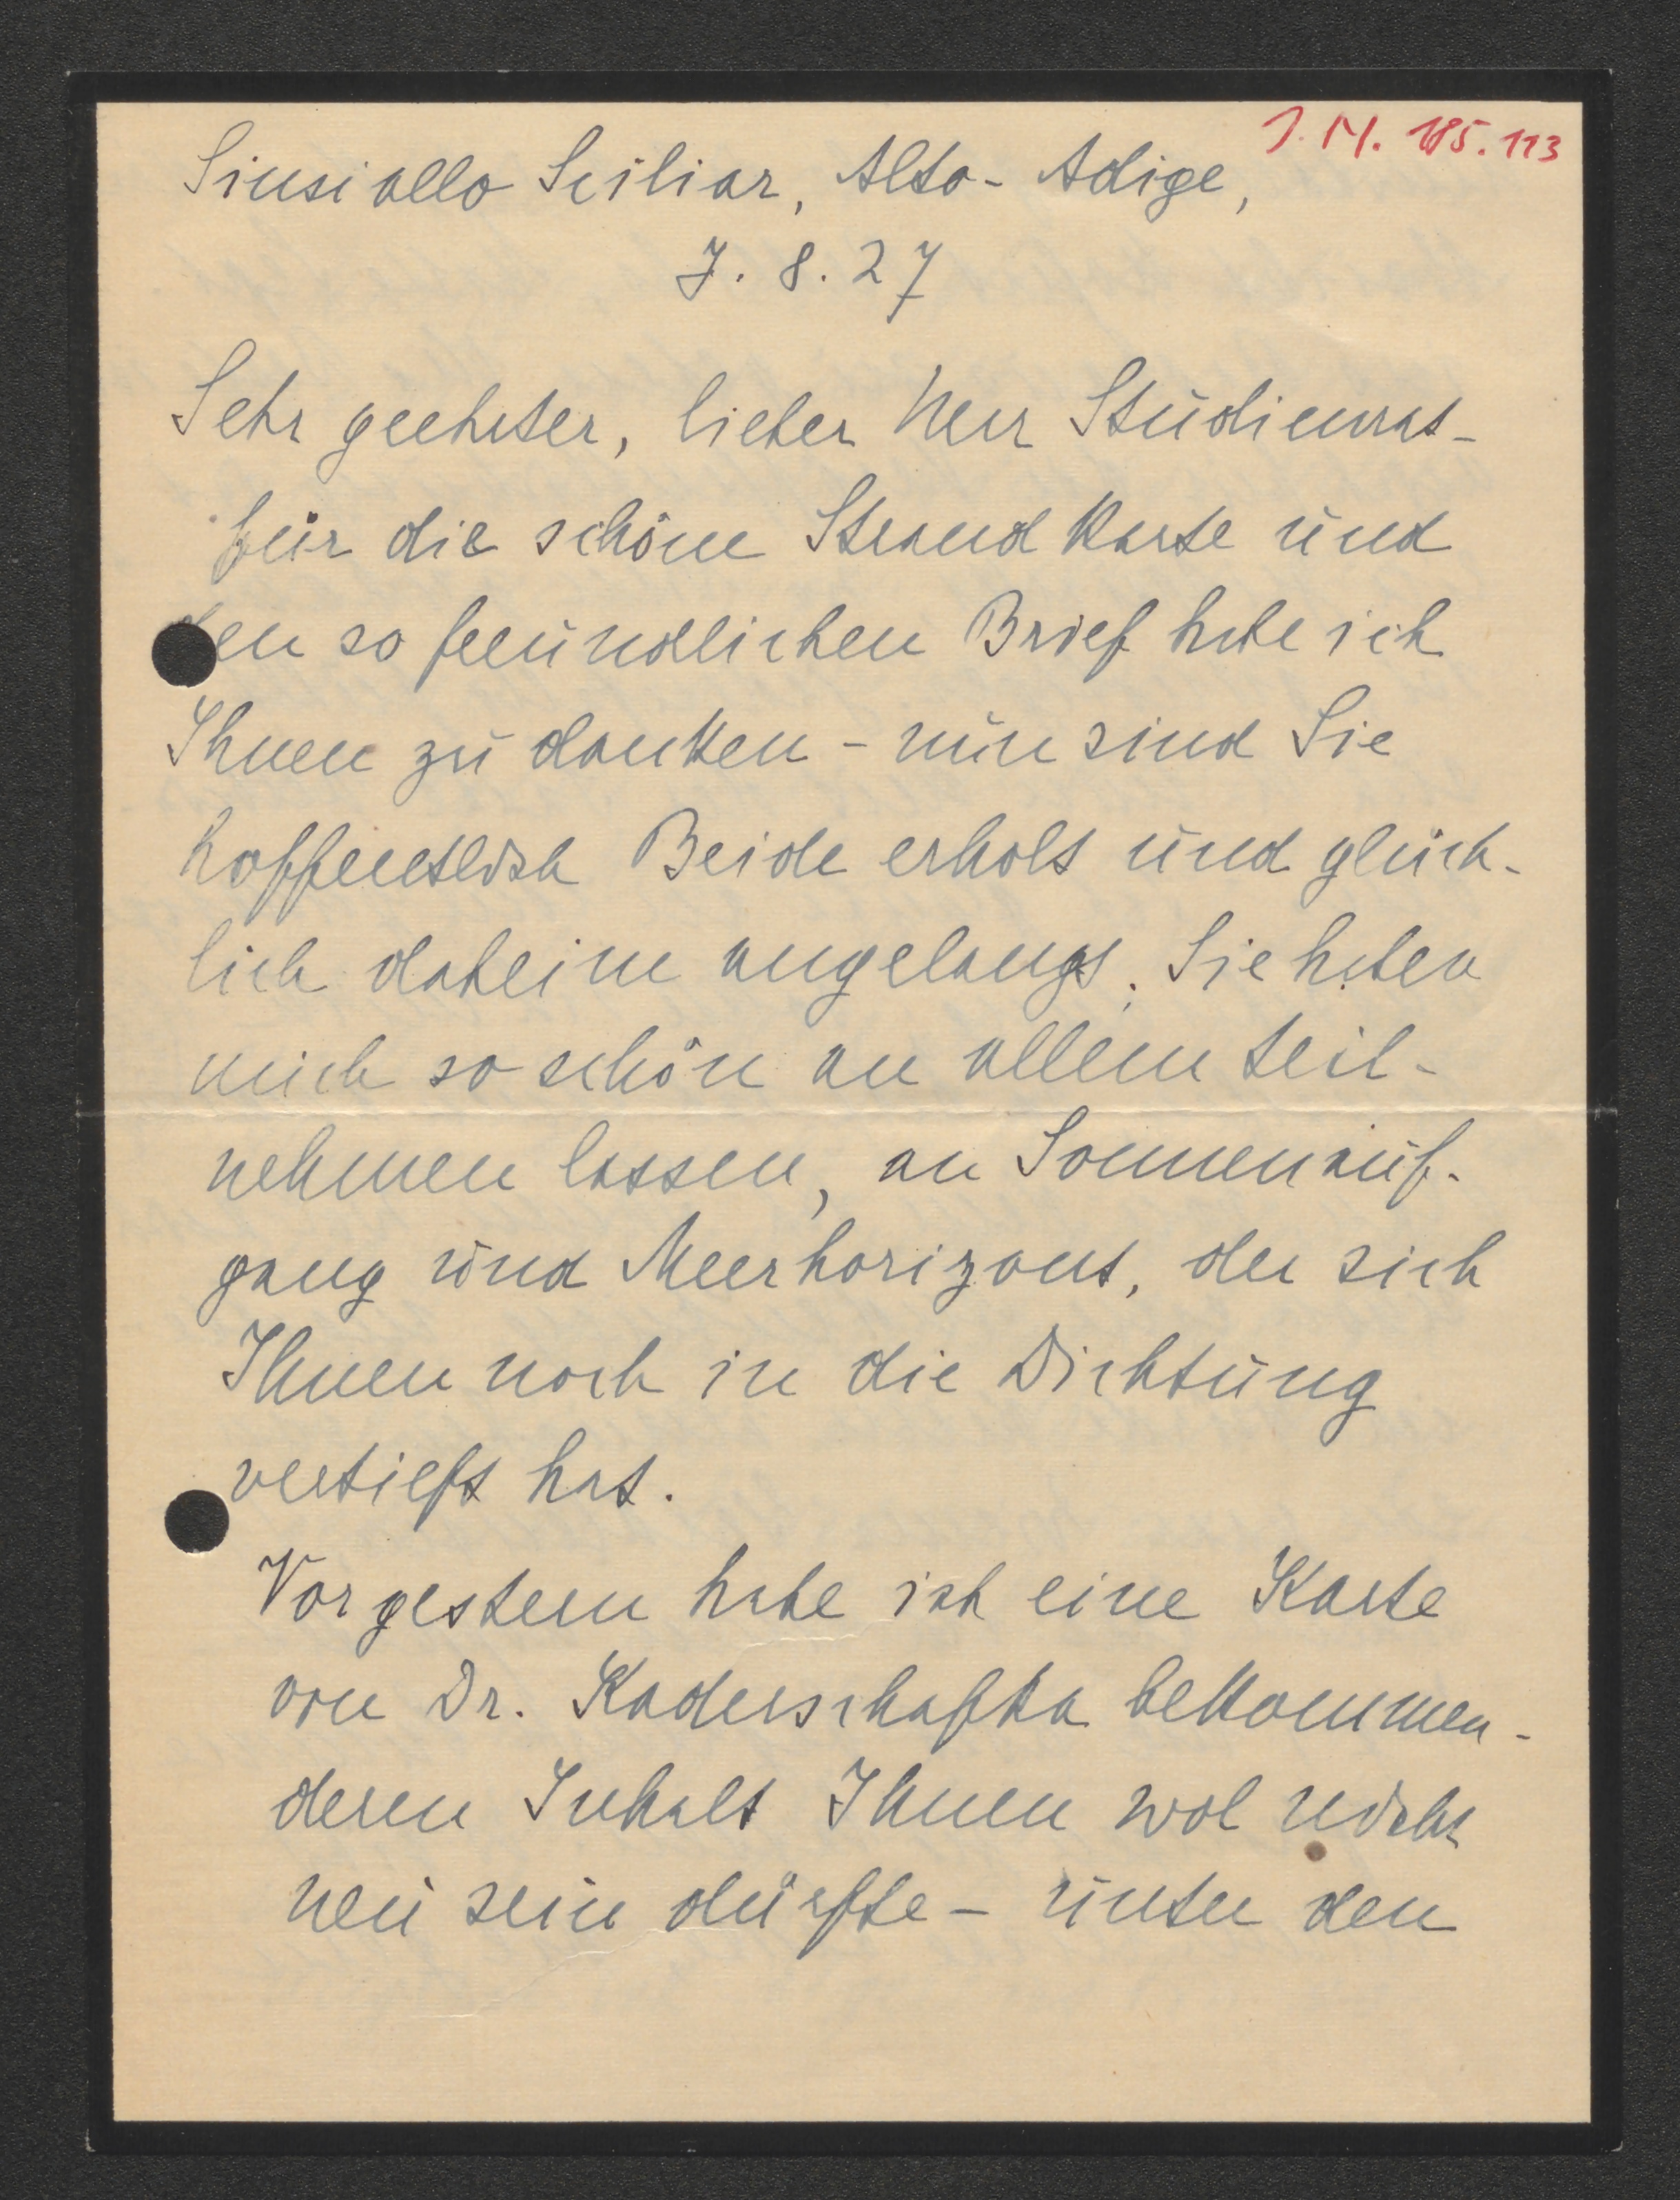 J. N. 185.113
Siusi allo Sciliar, Alto-Adige,
7. 8. 27
Sehr geehrter, lieber Herr Studienrat-
für die schöne Strandkarte und
den so freundlichen Brief habe ich
Ihnen zu danken - nun sind Sie
hoffentlich Beide erholt und glück-
lich daheim angelangt. Sie haben
mich so schön an allem teil-
nehmen lassen, an Sonnenauf-
gang und Meerhorizont, der sich
Ihnen noch in die Dichtung
vertieft hat.
Vorgestern habe ich eine Karte
von Dr. Kaderschafka bekommen-
deren Inhalt Ihnen wol nicht
neu sein dürfte - unter den